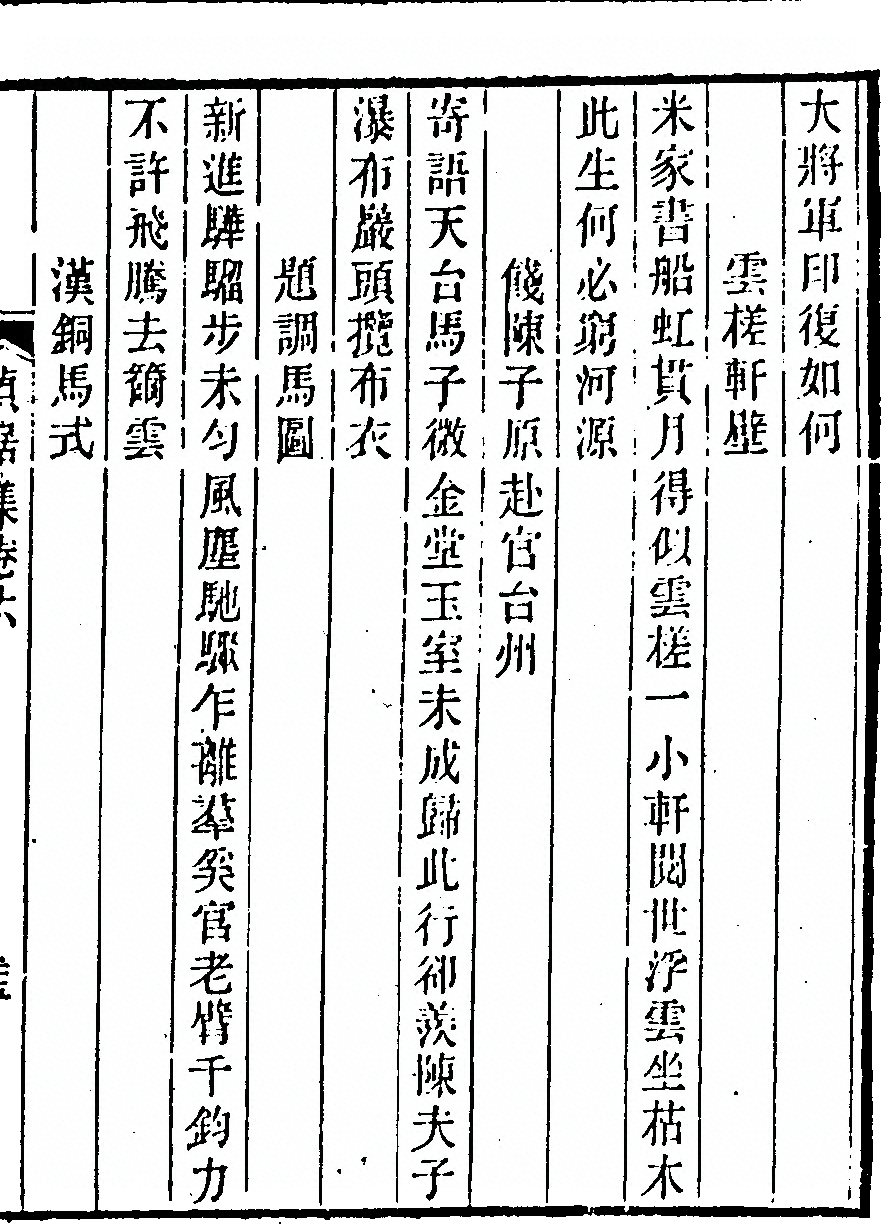 大將軍印復如何
雲槎軒壁
米家書船虹貫月得似雲槎一小軒閱世浮雲坐枯木
此生何必窮河源
餞陳子原赴官台州
寄語天台馬子微金堂玉室未成歸此行卻羨陳夫子
瀑布巖頭攬布衣
題調馬圖
新進驊騮步未勻風塵馳驟乍離羣奚官老臂千鈞力
不許飛騰去籋雲
漢銅馬式
貞居集卷六